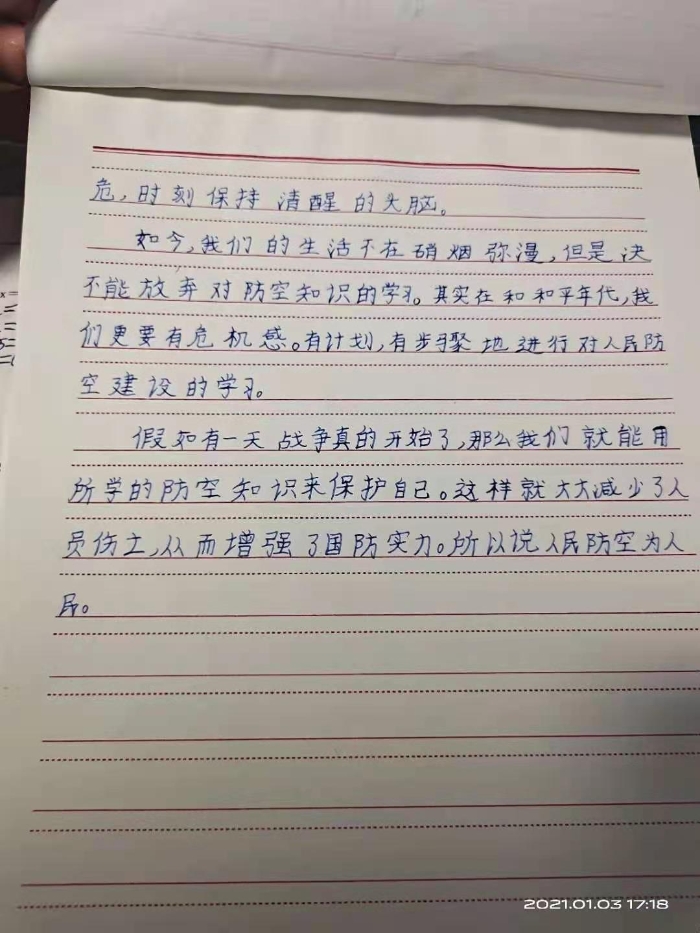 危,时刻保持清醒的头脑。
如今,我们的生活不在硝烟弥漫,但是决
不能放弃对防空知识的学习。其实在和和平年代,我
们更要有危机感。有计划,有步骤地进行对人民防
空建设的学习。
假如有一天战争真的开始了,那么我们就能用
所学的防空知识来保护自己。这样就大大减少了人
员伤亡,从而增强了国防实力。所以说人民防空为人
民。
2021.01.03 17:18